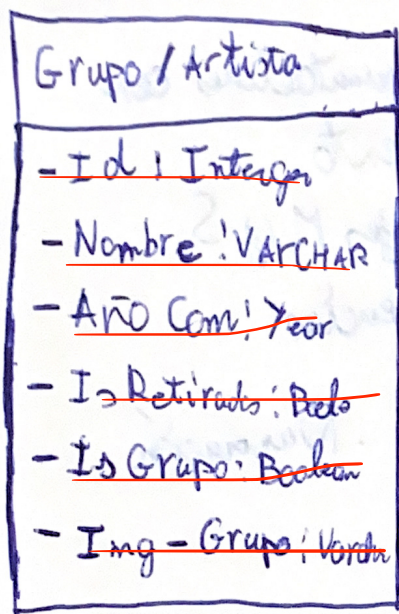 Grupo / Artista
- Id : Interger
- Nombre : VArCHAR
- Año Com : Year
- Is Retirado : Boolo
- Is Grupo : Boolean
- Img - Grupo : Varcha